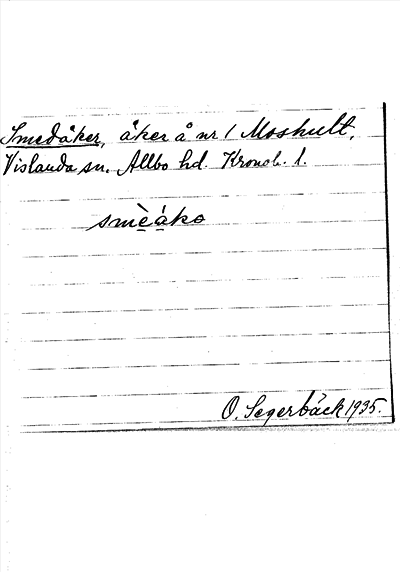 Smedåker, åker å nr 1 Moshult,
Vislanda sn. Allbo hd. Kronob. l.
smèáko
O. Segerbäck 1935.